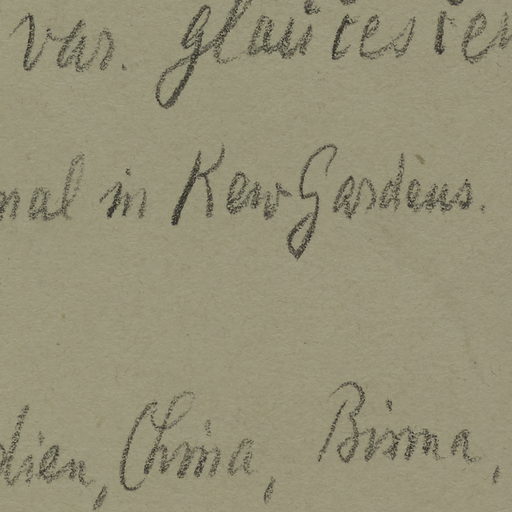 var. glaucescen
nal in Kew Gardens.
dien, China, Birma,